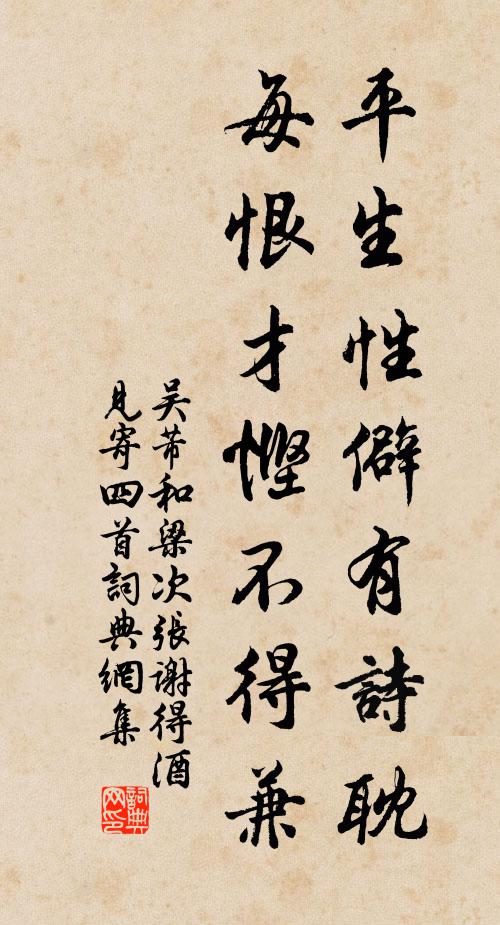 平生性僻有詩耽
每恨才慳不得兼
吴芾和梁次張謝得酒
見寄四首詞典網集
詞典网印